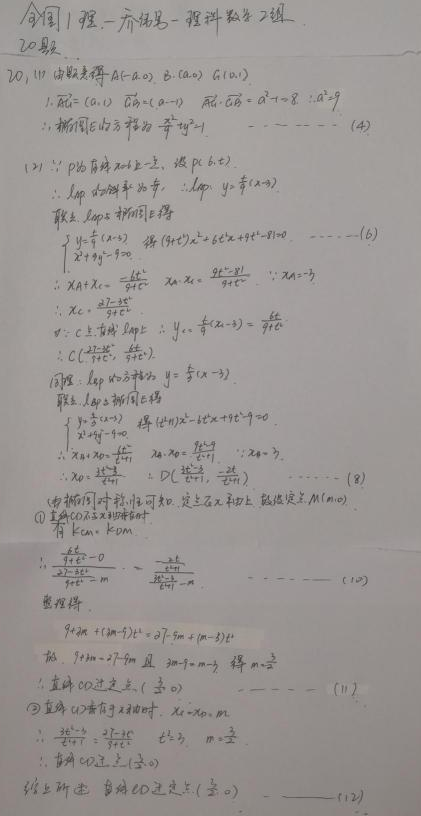 全国1理 - 乔伟马 - 理科数学2组
20题
20, (1) 由题意得 A(-a.0). B.(a.0) G(0.1)
∴ AG=(a.1) GB=(a.-1) AG·GB=a²-1=8 ∴a²=9
∴椭圆E的方程为 x²/9+y²=1 ------- (4)
(2) ∵ P为直线x=6上一点, 设P(6.t)
∴ lAP的斜率为t/9, ∴lAP: y=t/9(x-3)
联立lAP与椭圆E得
{y=t/9(x-3) x²+9y²-9=0 得(9+t²)x²+6t²x+9t²-81=0 ------(6)
∴ xA+xC=-6t²/9+t² xA·xC=9t²-81/9+t² ∵xA=-3
∴ xC=27-3t²/9+t²
又∵C点在直线lAP上 ∴yC=t/9(xC-3)=6t/9+t²
∴C(27-3t²/9+t², 6t/9+t²).
同理: lBP的方程为 y=t/3(x-3).
联立lBP与椭圆E得
{y=t/3(x-3) x²+9y²-9=0 得(t²+1)x²-6t²x+9t²-9=0
∴ xB+xD=6t²/t²+1 xB·xD=9t²-9/t²+1 ∵xB=3
∴xD=3t²-3/t²+1 ∴D(3t²-3/t²+1, -2t/t²+1) ------ (8)
(由椭圆对称性可知. 定点在x轴上, 故设定点M(m.0)
①直线CD不与x轴垂直时
有 KCM=KDM
∴ 6t/9+t²-0/27-3t²/9+t²-m = 2t/t²+1/3t²-3/t²+1-m ------- (10)
整理得
9+3m+(3m-9)t²=27-9m+(m-3)t²
故. 9+3m=27-9m 且 3m-9=m-3 得m=3/2
∴直线CD过定点(3/2.0) ------ (11)
②直线CD垂直于x轴时. xC=xD=m
∴ 3t²-3/t²+1=27-3t²/9+t² t²=3 m=3/2
∴直线CD过点(3/2.0)
综上所述 直线CD过定点(3/2.0) ------ (12)